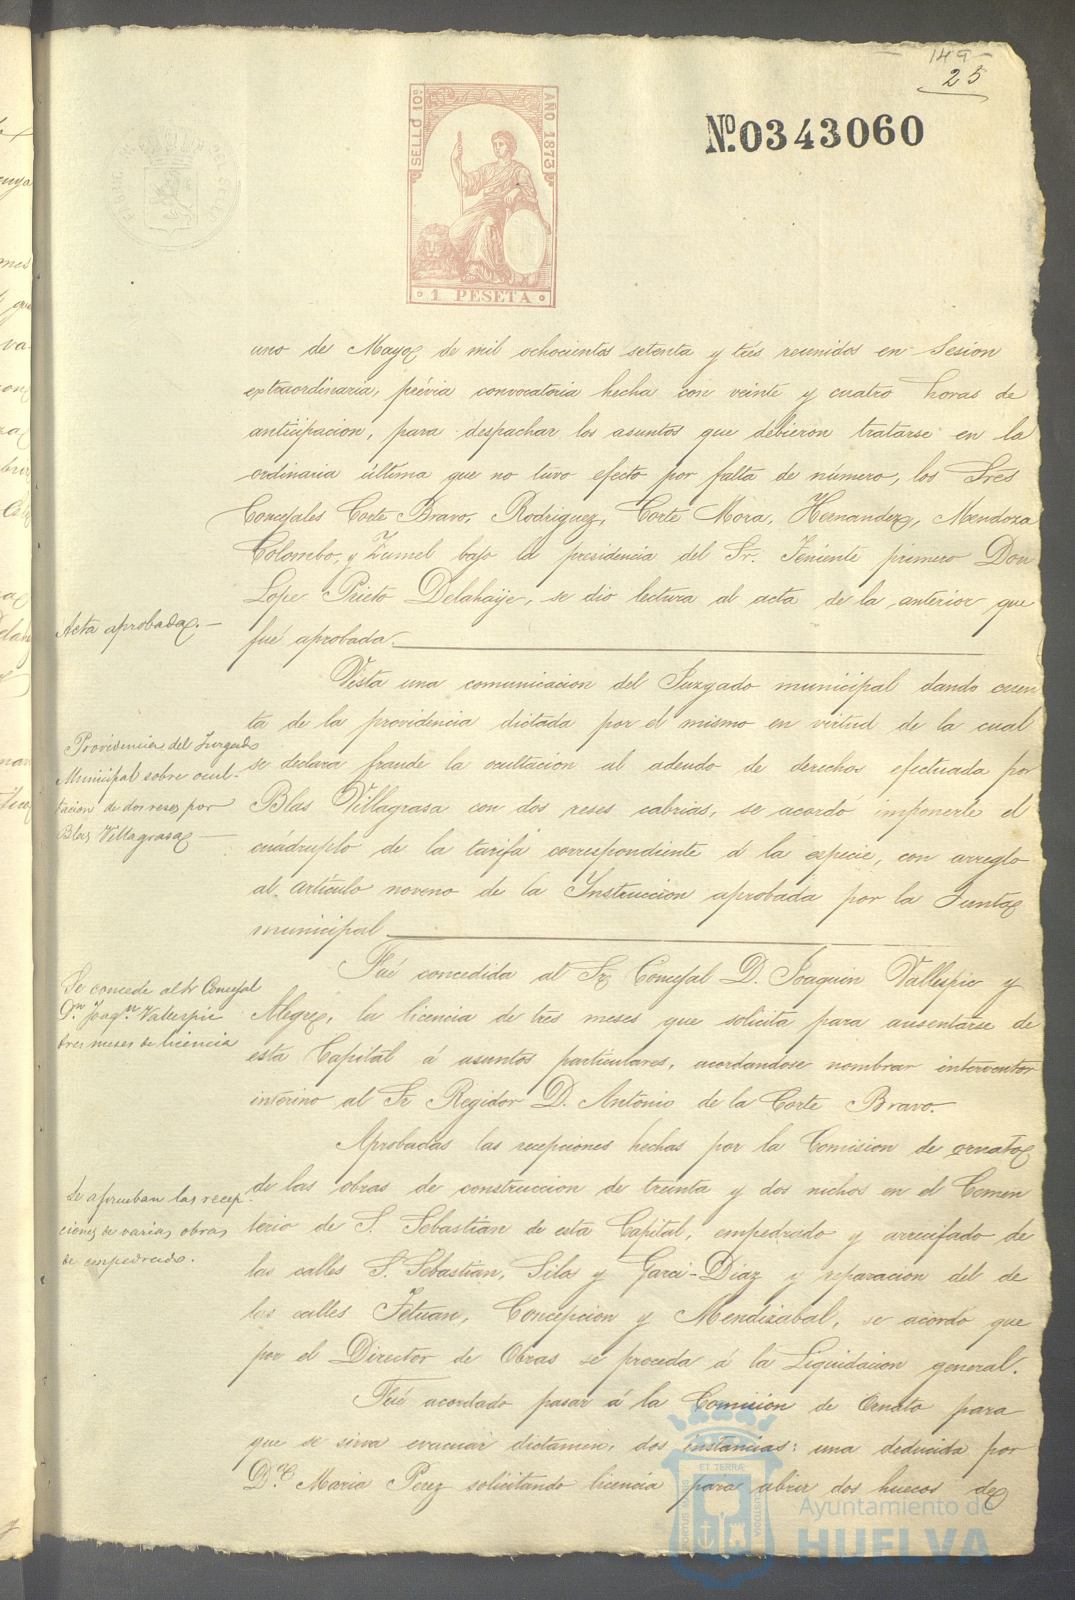 149
25
SELLO 10º
AÑO 1873
1 PESETA
Nº.0343060
uno de Mayo de mil ochocientos setenta y tres reunidos en Sesion
extraordinaria, prévia convocatoria hecha con veinte y cuatro horas de
anticipacion, para despachar los asuntos que debieron tratarse en la
ordinaria última que no tuvo efecto por falta de número, los Sres
Concejales Corte Bravo, Rodriguez, Corte Mora, Hernandez, Mendoza
Colombo, y Zumel bajo la presidencia del Sr. Teniente primero Don
Lope Prieto Delahaije, se dio lectura al acta de la anterior que
fué aprobada.
Acta aprobada.—
Vista una comunicacion del Juzgado municipal dando cuen
ta de la providencia dictada por el mismo en virtud de la cual
se declara fraude la ocultacion al adeudo de derechos efectuada por
Blas Villagrasa con dos reses cabrias, se acordó imponerle el
cuádruplo de la tarifa correspondiente á la especie, con arreglo
al artículo noveno de la Instruccion aprobada por la Junta
municipal
Providencia del Juzgado
Municipal sobre ocul-
tacion de dos reses por
Blas Villagrasa—
Fué concedida al Sr. Concejal D. Joaquin Vallespic y
Alegre, la licencia de tres meses que solicita para ausentarse de
esta Capital á asuntos particulares, acordandose nombrar interventor
interino al Sr Regidor D. Antonio de la Corte Bravo.
Se concede al Sr Concejal
Dn. Joaqn. Vallespic
tres meses de licencia
Aprobadas las recepciones hechas por la Comision de ornato
de las obras de construccion de treinta y dos nichos en el Cemen
terio de S. Sebastian de esta Capital, empedrado y arrecifado de
las calles S. Sebastian, Silos y Garci-Diaz y reparacion del de
las calles Tetuan, Concepcion y Mendizabal, se acordo que
por el Director de Obras se proceda á la Liquidacion general.
Se aprueban las recep-
ciones de varias obras
de empedrado.
Fué acordado pasar á la Comision de Ornato para
que se sirva evacuar dictamen, dos instancias: una deducida por
D.ª Maria Perez solicitando licencia para abrir dos huecos de
PORTUS MARIS
ET TERRÆ
CUSTODIA
Ayuntamiento de
HUELVA